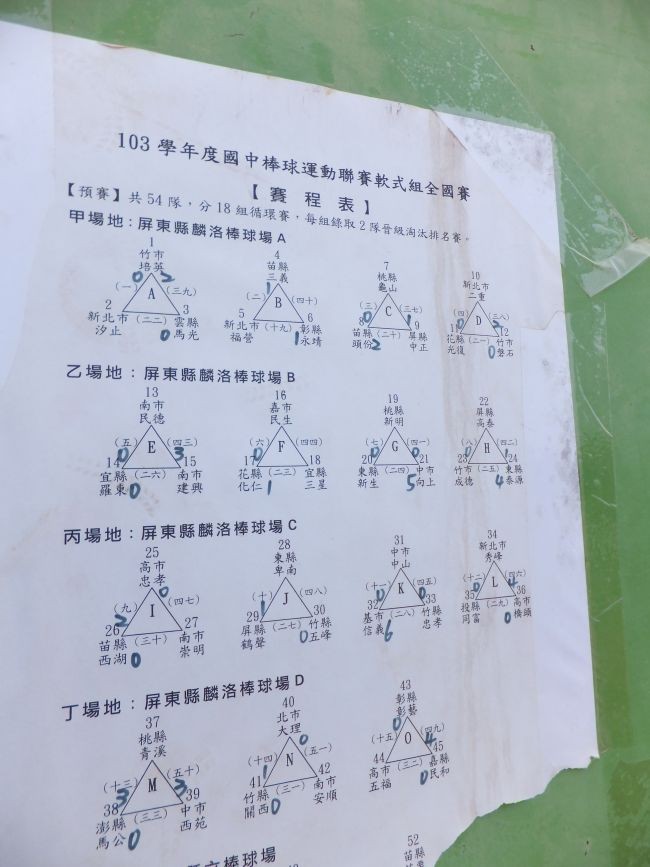 103 學年度國中棒球運動聯賽軟式組全國賽
【 賽 程 表 】
【預賽】共 54 隊，分 18 組循環賽，每組錄取 2 隊晉級淘汰排名賽。
甲場地：屏東縣麟洛棒球場 A
1 4 7 10
竹市 苗縣 桃縣 新北市
培英 三義 龜山 二重
0 2 1
(一) A (三九) (二) B (四十) (三) C (三七) (四) D (三八)
2 (二二) 3 5 (十九) 6 8 (二十) 9 11 (二一) 12
新北市 雲縣 新北市 彰縣 苗縣 屏縣 花縣 竹市
汐止 0 馬光 福營 1 永靖 頭份 2 中正 光復 0 磐石
乙場地：屏東縣麟洛棒球場 B
13 16 19 22
南市 嘉市 桃縣 屏縣
民德 民生 新明 高泰
(五) E (四三) (六) F (四四) (七) G (四一) (八) H (四二)
0 3 0 0 0 1
14 (二六) 15 17 (二三) 18 20 (二四) 21 23 (二五) 24
宜縣 南市 花縣 宜縣 東縣 中市 竹市 東縣
羅東 0 建興 化仁 1 三星 新生 5 向上 成德 4 泰源
丙場地：屏東縣麟洛棒球場 C
25 28 31 34
高市 東縣 中市 新北市
忠孝 0 卑南 中山 秀峰
(九) I (四七) (十) J (四八) (十一) K (四五) (十二) L (四六)
2 1 0 0 0 4
26 (三十) 27 29 (二七) 30 32 (二八) 33 35 (二九) 36
苗縣 南市 屏縣 竹縣 基市 竹縣 投縣 高市
西湖 0 崇明 鶴聲 0 五峰 信義 6 忠孝 同富 0 橋頭
丁場地：屏東縣麟洛棒球場 D
37 40 43
桃縣 北市 彰縣
青溪 大理 0 彰藝 0
(十三) M (五十) (十四) N (五一) (十五) O (四九)
3 3 1 4
38 (三三) 39 41 (三一) 42 44 (三二) 45
澎縣 中市 竹縣 南市 高市 嘉縣
馬公 0 西苑 關西 0 安順 五福 0 民和
52
苗縣